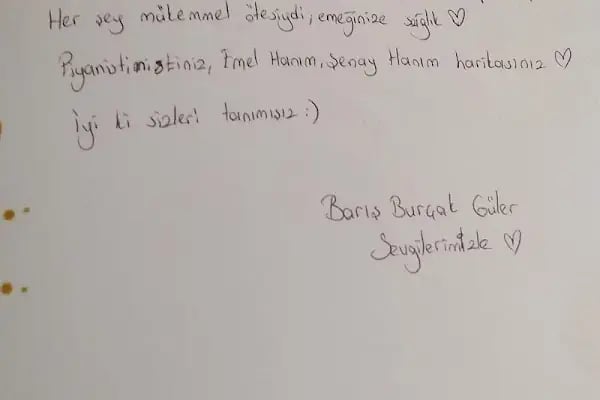 Her şey mükemmel ötesiydi, emeğinize sağlık ♡
Piyanistinistiniz, Emel Hanım, Şenay Hanım harikasınız ♡
İyi ki sizleri tanımışız :)
Barış Burçak Güler
Sevgilerimizle ♡